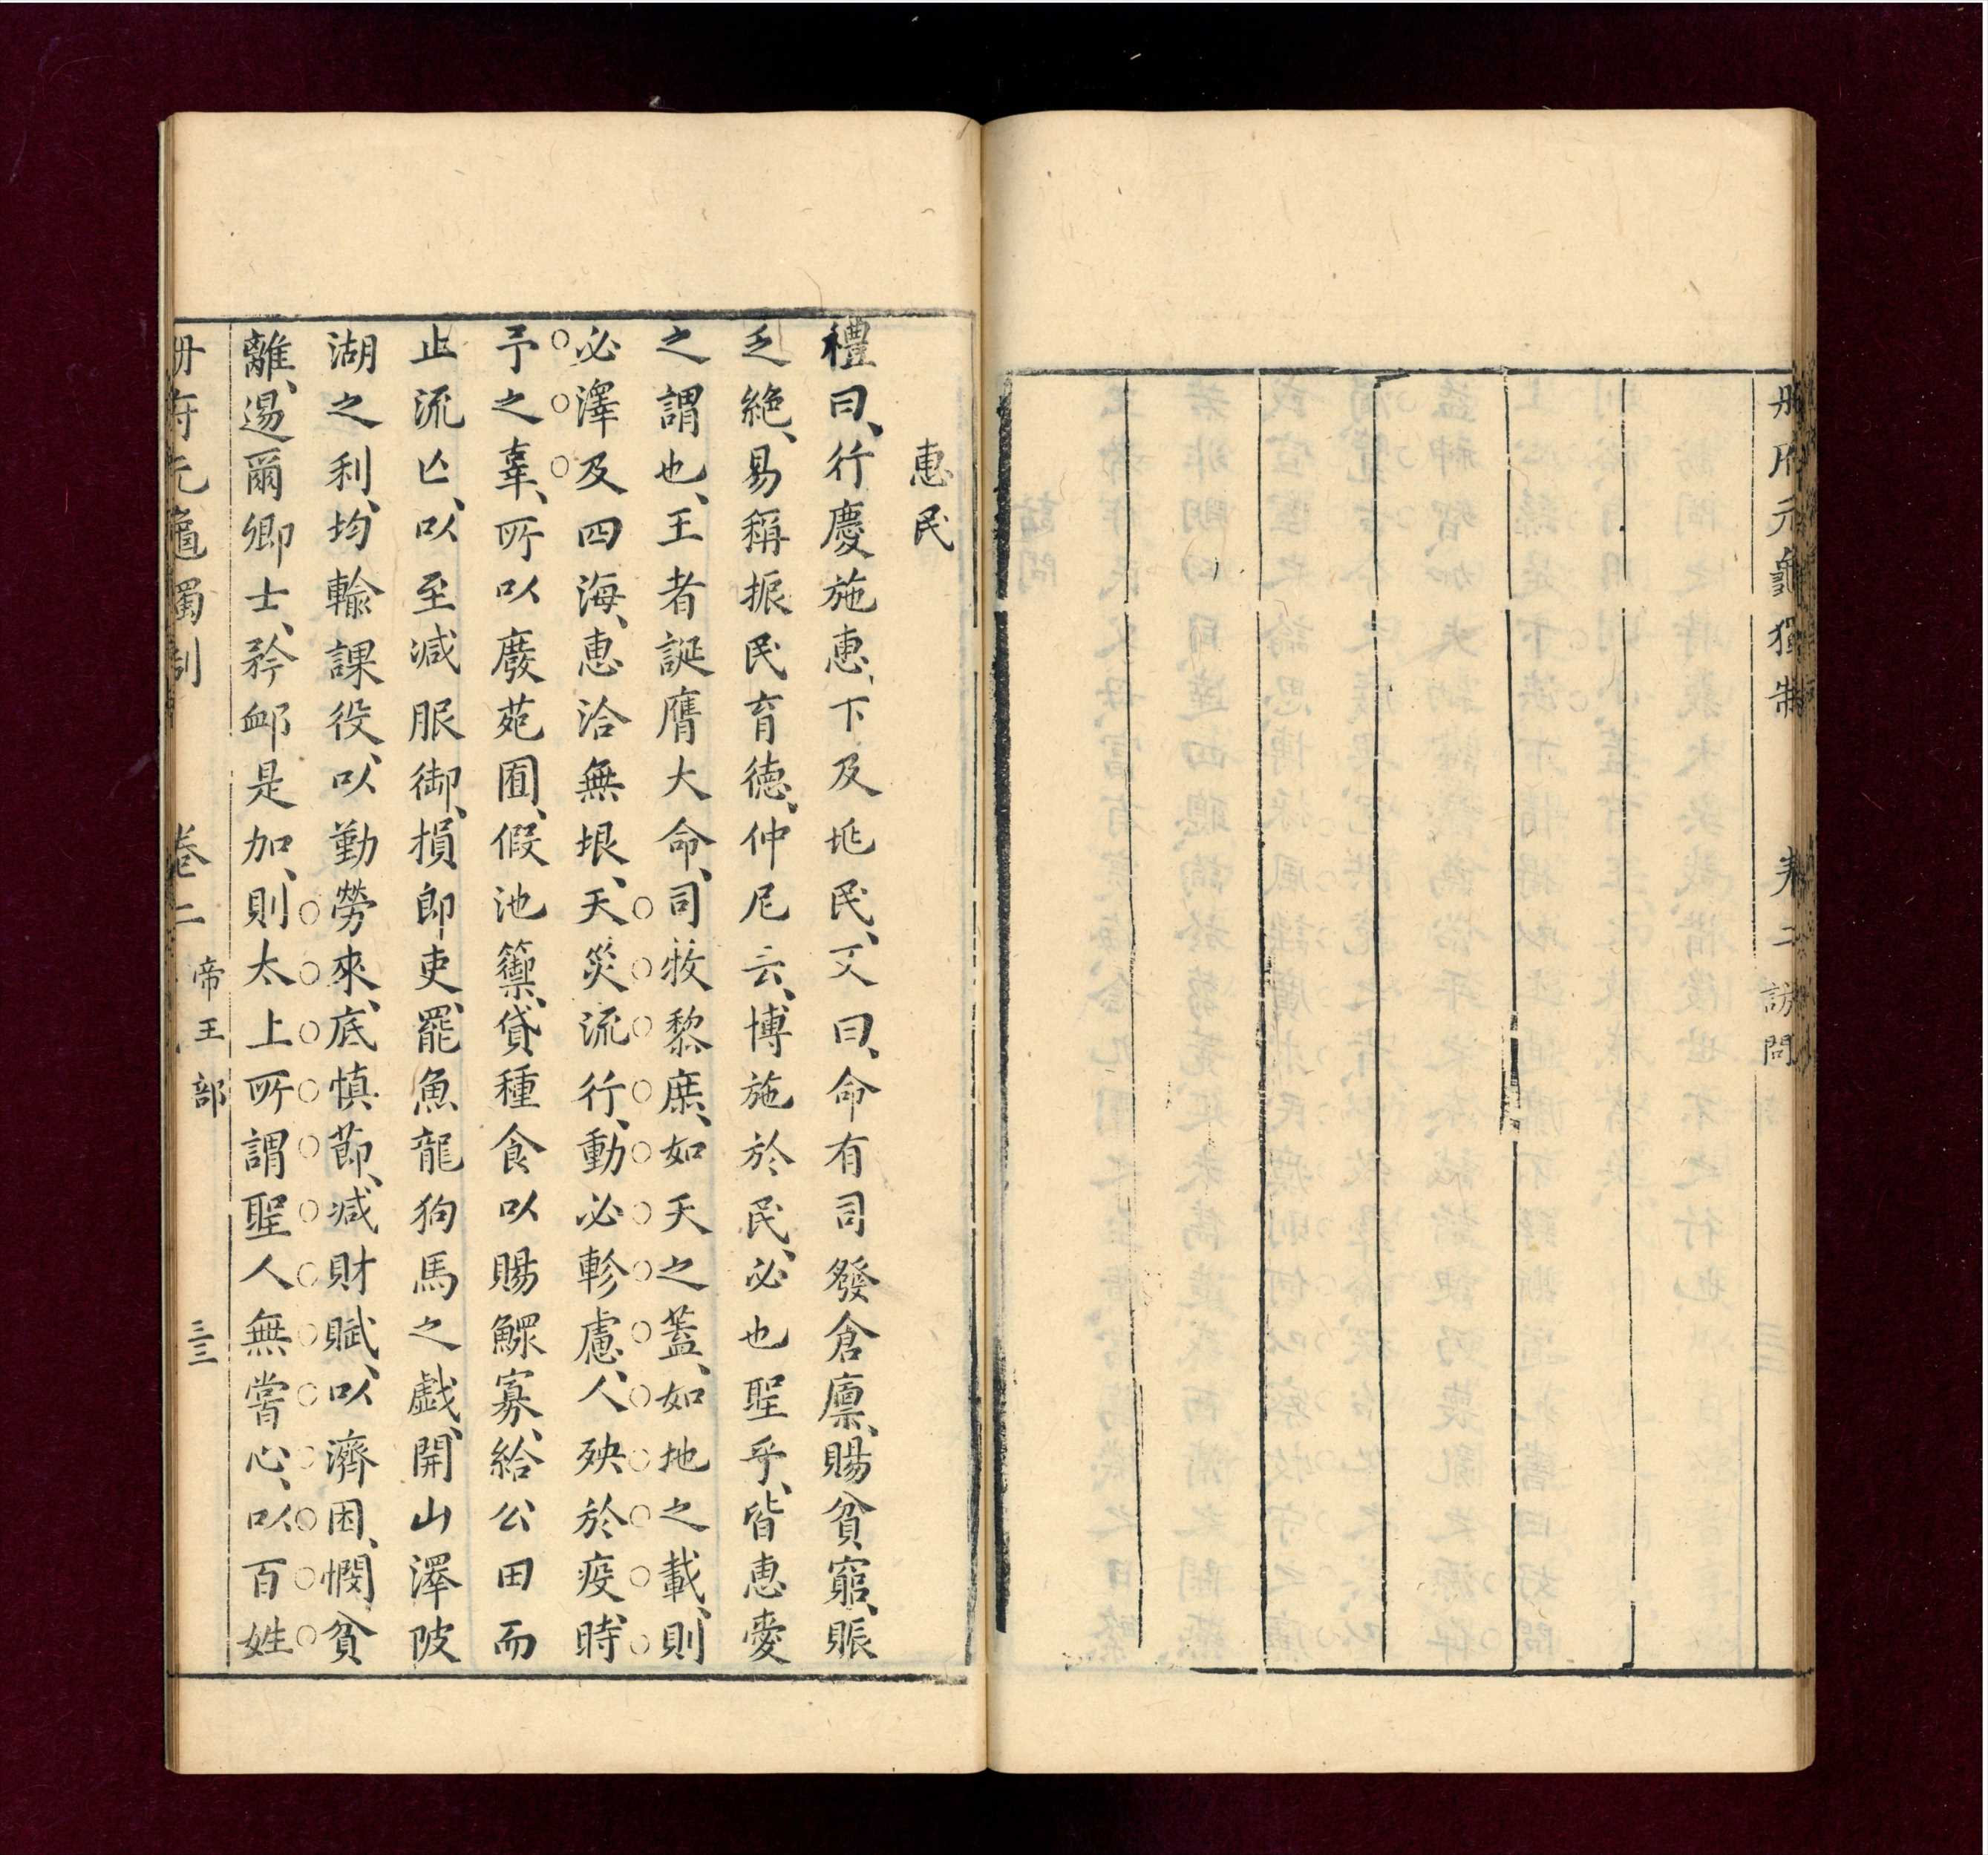 册府元龜獨制　卷二　訪問
惠民
禮曰、行慶施惠、下及兆民、又曰、命有司發倉廩、賜貧窮、賑
乏絶、易稱振民育德、仲尼云、博施於民、必也聖乎、皆惠愛
之謂也、王者誕膺大命、司牧黎庶、如天之葢、如地之載、則
必澤及四海、惠洽無垠、天災流行、動必軫慮、人殃於疫、時
予之辜、所以廢苑囿、假池籞、貸種食以賜鰥寡、給公田而
止流亾、以至減服御、損郎吏、罷魚龍狗馬之戲、開山澤陂
湖之利、均輸課役、以勤勞來、底慎節、減財賦、以濟困、憫貧
離、逷爾卿士、矜卹是加、則太上所謂聖人無嘗心、以百姓
册府元龜獨制　卷二　帝王部　三三